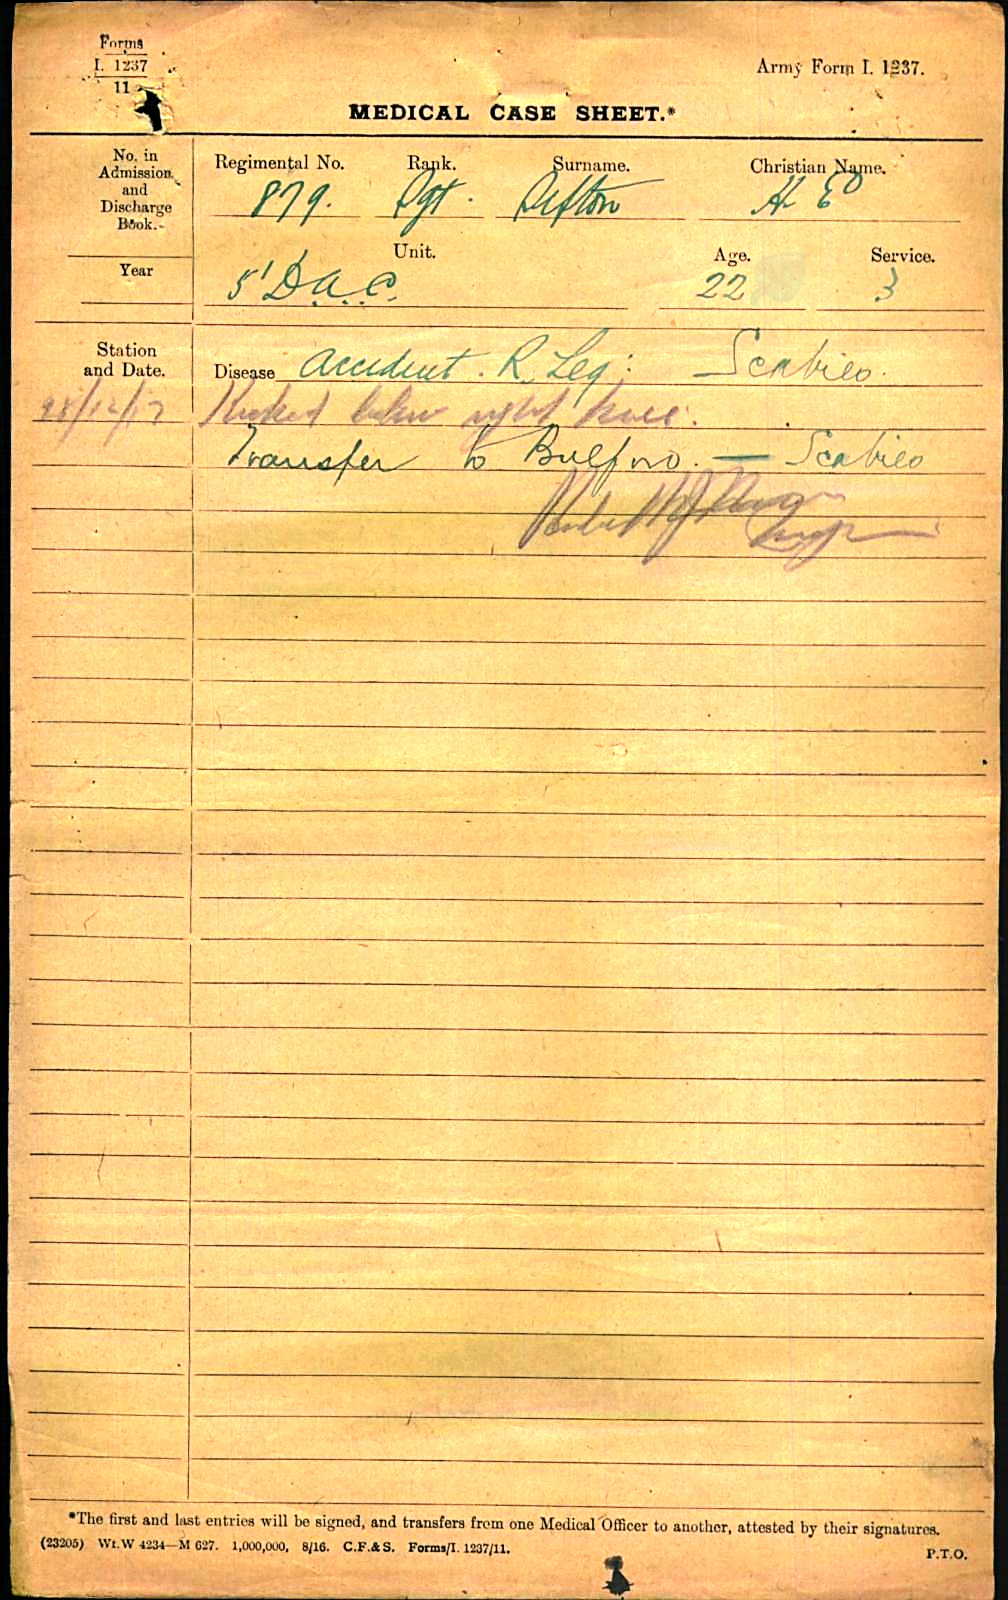 Forms
I. 1237
11
Army Form I. 1237.
MEDICAL CASE SHEET.*
No. in Admission and Discharge Book.
Regimental No. Rank. Surname. Christian Name.
879. Sgt. Sefton H E
Unit. Age. Service.
Year
5' D.A.C. 22 3
Station and Date.
Disease Accident. R. Leg: Scabies.
28/12/17 Kicked below right knee.
Transfer to Bulford. — Scabies
*The first and last entries will be signed, and transfers from one Medical Officer to another, attested by their signatures.
(23205) Wt.W 4234—M 627. 1,000,000, 8/16. C.F.& S. Forms/I. 1237/11.
P.T.O.